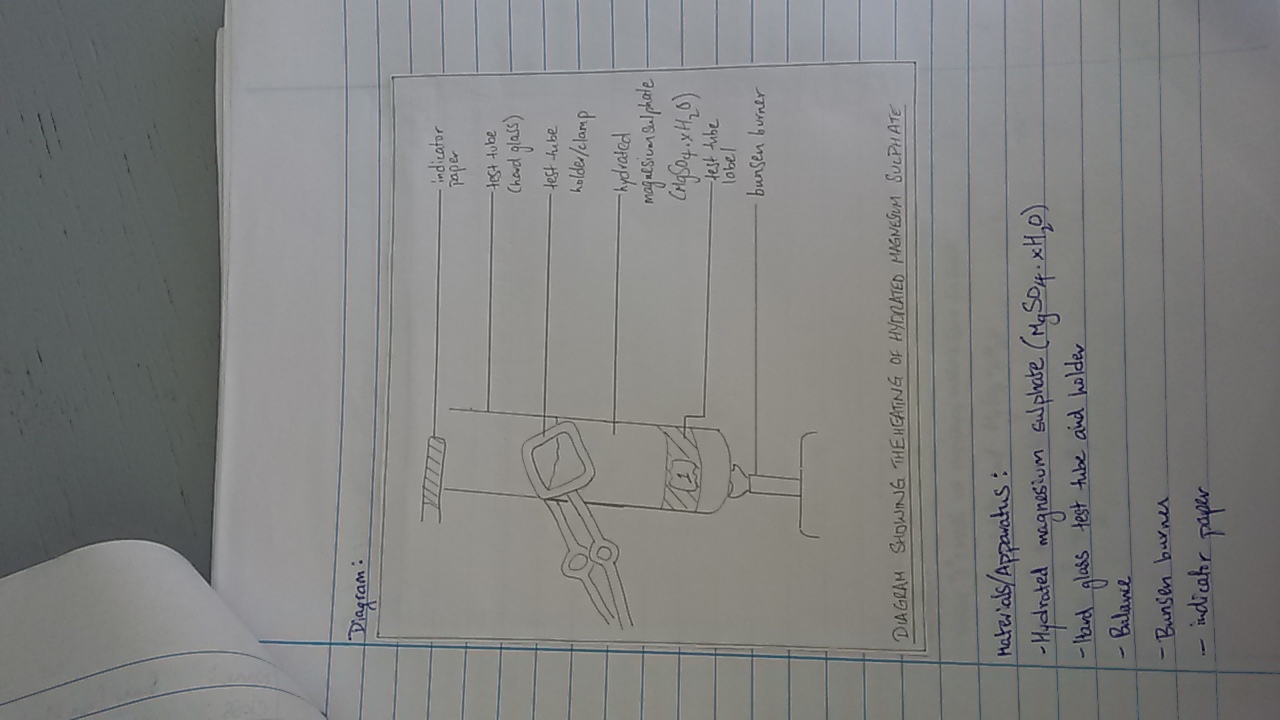 Diagram:
indicator
paper
test tube
(hard glass)
test tube
holder/clamp
hydrated
magnesium sulphate
(MgSO4.xH2O)
test tube
label
bunsen burner
1
DIAGRAM SHOWING THE HEATING OF HYDRATED MAGNESIUM SULPHATE
Materials/Apparatus:
- Hydrated magnesium sulphate (MgSO4.xH2O)
- Hard glass test tube and holder
- Balance
- Bunsen burner
- indicator paper